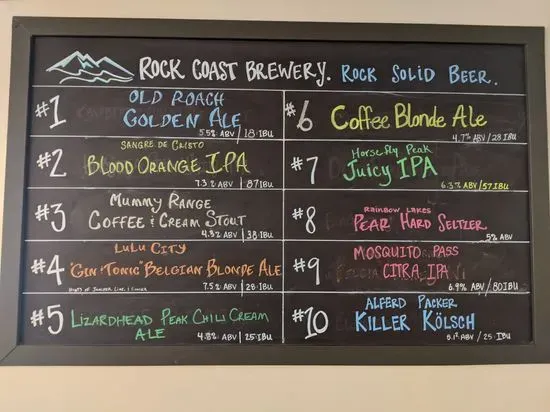 ROCK COAST BREWERY. ROCK SOLID BEER.
#1 OLD ROACH
GOLDEN ALE
5.5% ABV / 18 IBU
#2 SANGRE DE CRISTO
BLOOD ORANGE IPA
7.3% ABV / 87 IBU
#3 MUMMY RANGE
COFFEE & CREAM STOUT
4.3% ABV / 38 IBU
#4 LULU CITY
"GIN & TONIC" BELGIAN BLONDE ALE
HINTS OF JUNIPER LIME & GINGER
7.5% ABV / 28 IBU
#5 LIZARDHEAD PEAK CHILI CREAM
ALE
4.8% ABV / 25 IBU
#6 Coffee Blonde Ale
4.7% ABV / 28 IBU
#7 Horse Fly Peak
Juicy IPA
6.3% ABV / 57 IBU
#8 RAINBOW LAKES
PEAR HARD SELTZER
5% ABV
#9 MOSQUITO PASS
CITRA IPA
6.9% ABV / 80 IBU
#10 ALFERD PACKER
KILLER KÖLSCH
5.1% ABV / 25 IBU